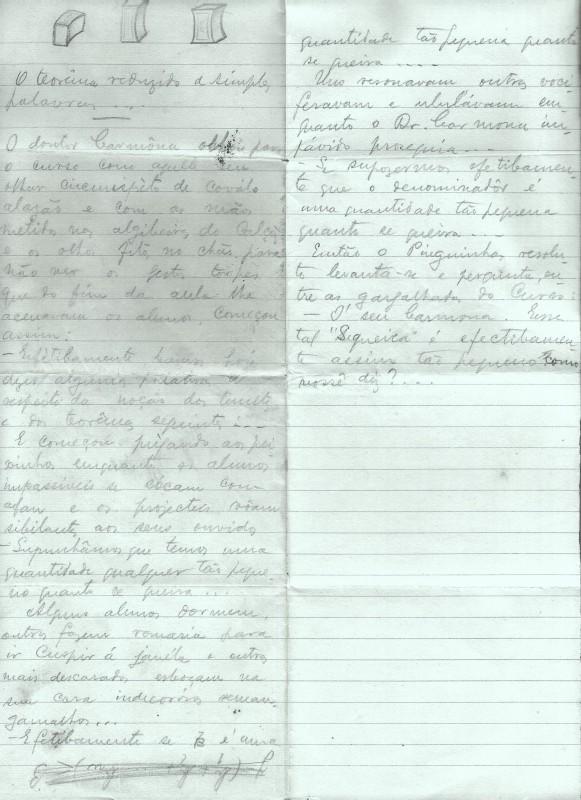 O teorêma reduzido a simples
palavras ...
O doutor Carmôna olhou para
o curso com aquele seu
olhar circunspéto de cavalo
alazão e com as mãos
metidas nas algibeiras da calça
e os olhos fitos no chão, para
não ver os gestos torpes
que do fim da aula lhe
acenavam os alunos, começou
assim:
– Efétibamente hoje
dizer alguma relativa a
respeito da noção dos
e dos teorêmas seguintes ...
E começou prégando aos pei-
xinhos enquanto os alunos
impassiveis se cócam com
afan e os projecteis vôam
sibilantes aos seus ouvidos
– Supunhâmos que temos uma
quantidade qualquer tão peque-
na quanto se queira ...
Alguns alunos dormem,
outros fazem romaria para
ir cuspir á janéla e outros
mais descarados esboçam na
sua cara indecorósos
...
– Efétibamente se é uma
quantidade tão pequena quanto
se queira ....
Uns ressonavam outros voci
feravam e ululávam en
quanto o Dr. Carmona im
pávido proseguia ...
– Se supozermos efétibamen-
te que o denominadôr é
uma quantidade tão pequena
quanto se queira ...
Então o Pinguinhas resolu-
to levanta-se e pergunta, en-
tre as gargalhadas do Curso:
– O' seu Carmona. Esse
tal "Siqueira" é efectibamen-
te assim tão pequeno como
vossê diz? ...